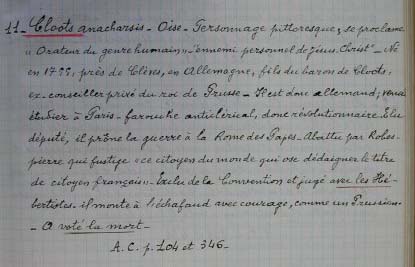 11_ Cloots anacharsis - Oise - Personnage pittoresque, se proclame
"Orateur du genre humain", ennemi personnel de Jésus. Christ" - Né
en 1755, près de Clèves, en Allemagne, fils du baron de Cloots,
ex-conseiller privé du roi de Prusse - Il est donc allemand, venu
étudier à Paris - farouche anticlérical, donc révolutionnaire. Elu
député, il prône la guerre à la Rome des Papes - Abattu par Robes-
pierre qui fustige "ce citoyen du monde qui ose dédaigner le titre
de citoyen français" - Exclu de la Convention et jugé avec les Hé-
bertistes - il monte à l'échafaud avec courage, comme un Prussien -
- A voté la mort -
A.C. p. 104 et 346 -